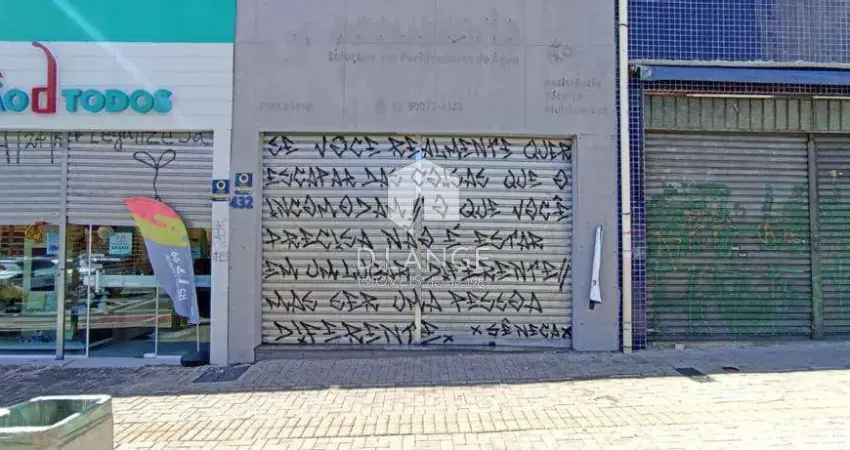 d TODOS
Soluções em Purificadores de Água
Assistência
Técnica
Multimarcas
432
SE VOCE REALMENTE QUER
ESCAPAR DAS COISAS QUE O
INCOMODAM O QUE VOCÊ
PRECISA NÃO É ESTAR
EM UM LUGAR DIFERENTE//
MAS SER UMA PESSOA
DIFERENTE xSÊNECAx
DJANGE
IMÓVEIS